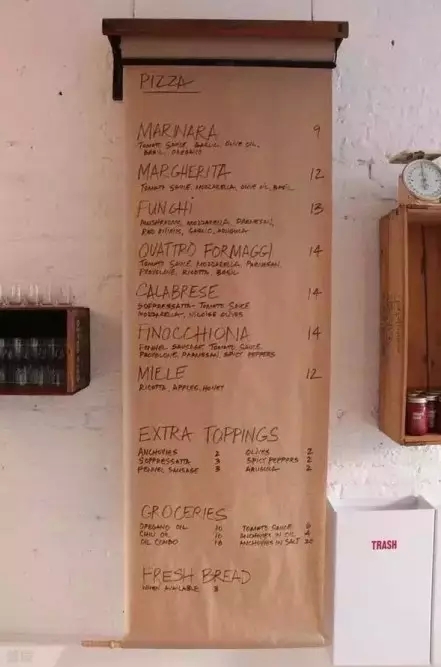 PIZZA
MARINARA 9
TOMATO SAUCE, GARLIC, OLIVE OIL,
BASIL, OREGANO
MARGHERITA 12
TOMATO SAUCE, MOZZARELLA, OLIVE OIL, BASIL
FUNGHI 13
MUSHROOMS, MOZZARELLA, PARMESAN,
RED ONIONS, GARLIC, ARUGULA
QUATTRO FORMAGGI 14
TOMATO SAUCE, MOZZARELLA, PARMESAN,
PROVOLONE, RICOTTA, BASIL
CALABRESE 14
SOPPRESSATA - TOMATO SAUCE
MOZZARELLA, NICOISE OLIVES
FINOCCHIONA 14
FENNEL SAUSAGE TOMATO SAUCE,
PROVOLONE, PARMESAN, SPICY PEPPERS
MIELE 12
RICOTTA, APPLES, HONEY
EXTRA TOPPINGS
ANCHOVIES 2 OLIVES 2
SOPPRESSATA 3 SPICY PEPPERS 2
FENNEL SAUSAGE 3 ARUGULA 2
GROCERIES
OREGANO OIL 10 TOMATO SAUCE 6
CHILI OIL 10 ANCHOVIES IN OIL 4
OIL COMBO 18 ANCHOVIES IN SALT 20
FRESH BREAD
WHEN AVAILABLE 3
TRASH